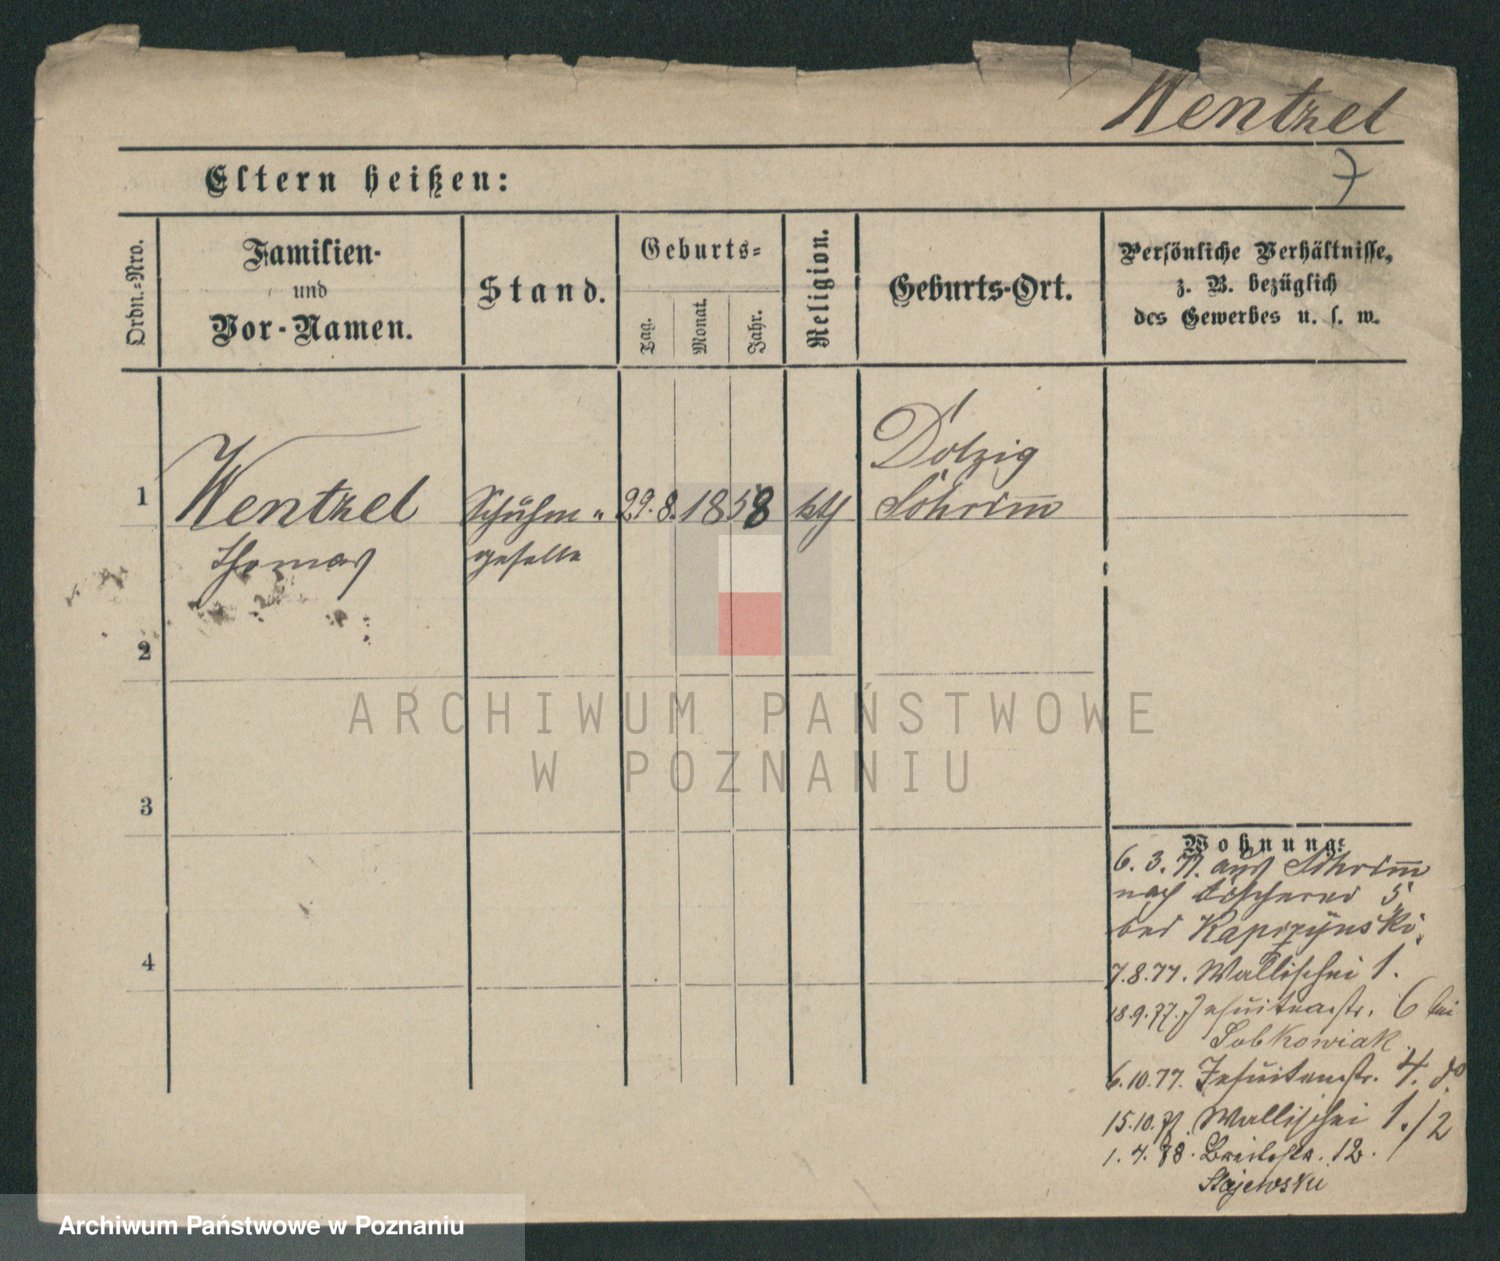 Wentzel
7
Eltern heißen:
Ordn.-Nro.
Familien-
und
Vor-Namen.
Stand.
Geburts-
Tag.
Monat.
Jahr.
Religion.
Geburts-Ort.
Persönliche Verhältnisse,
z. B. bezüglich
des Gewerbes u. s. w.
1
Wentzel
Thomas
Schuhm-
geselle
29. 8. 1858
kth
Dolzig
Schrim̅
2
3
4
Wohnung:
6. 3. 77. aus Schrim̅
nach Fischerei 5
bei
7.8.77. Wallischei 1.
18.9.77. Jesuitenstr. 6 bei
Sobkowiak
6.10.77. Jesuitenstr. 4. do
15.10.77. Wallischei 1./2
1. 4. 78. Breitestr. 12.
Majewski
ARCHIWUM PAŃSTWOWE
W POZNANIU
Archiwum Państwowe w Poznaniu